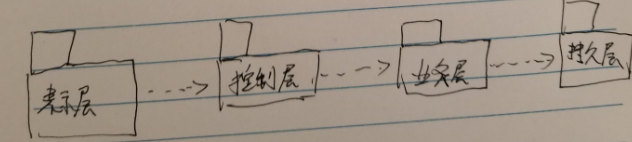 表示层 控制层 业务层 持久层